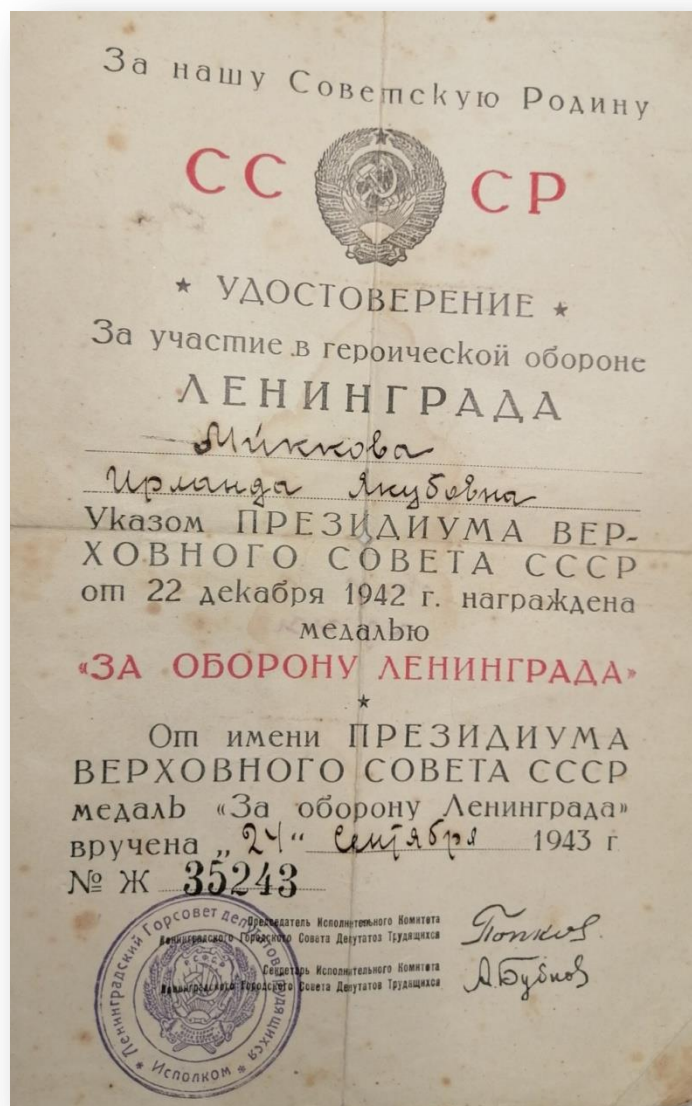 За нашу Советскую Родину
СС СР
★ УДОСТОВЕРЕНИЕ ★
За участие в героической обороне
ЛЕНИНГРАДА
Миккова
Ирланда Якубовна
Указом ПРЕЗИДИУМА ВЕР-
ХОВНОГО СОВЕТА СССР
от 22 декабря 1942 г. награждена
медалью
«ЗА ОБОРОНУ ЛЕНИНГРАДА»
★
От имени ПРЕЗИДИУМА
ВЕРХОВНОГО СОВЕТА СССР
медаль «За оборону Ленинграда»
вручена „24“ сентября 1943 г
№ Ж 35243
Председатель Исполнительного Комитета
Ленинградского Городского Совета Депутатов Трудящихся
Попков
Секретарь Исполнительного Комитета
Ленинградского Городского Совета Депутатов Трудящихся
А. Бубнов
Ленинградский Горсовет депутатов трудящихся
★ Исполком ★